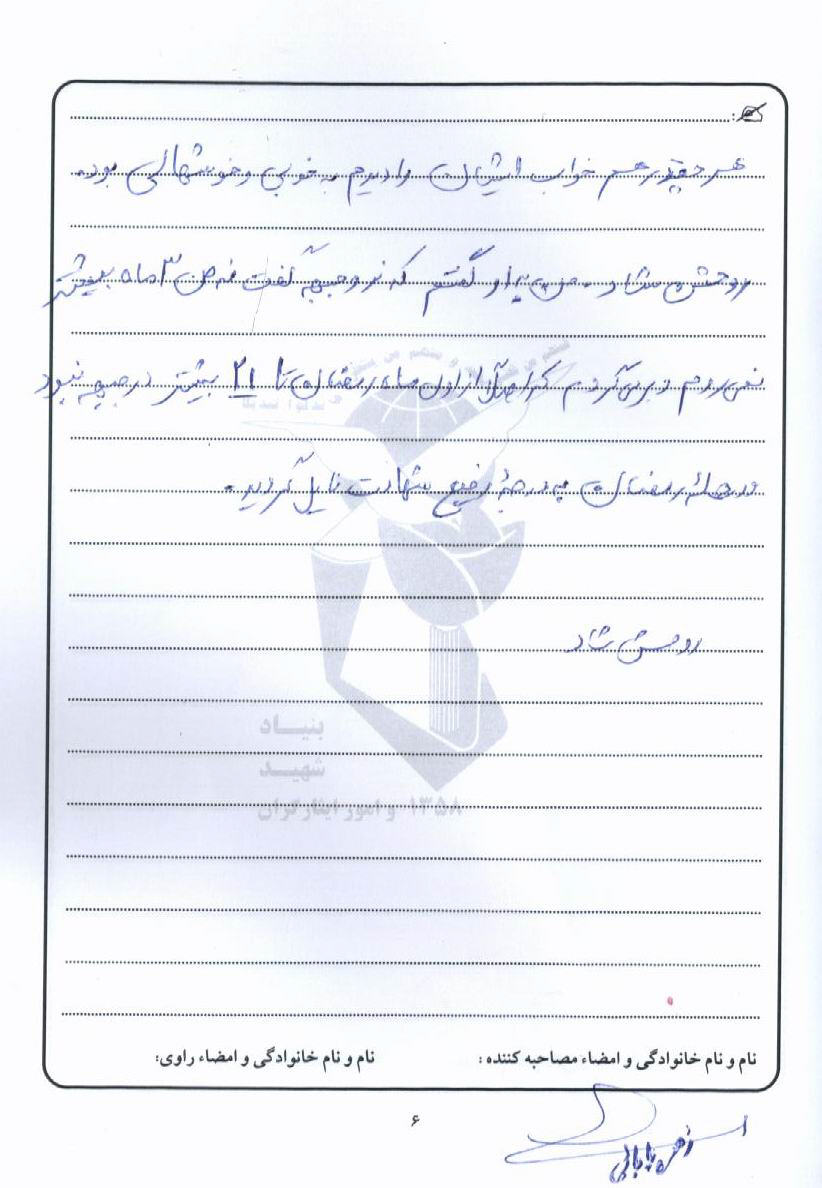 هر چقدر هم خواب ایشان را دیدم به خوبی و خوشهالی بود.
روحش شاد. من به او گفتم که نرو جبهه گفت نه من ۳ ماه بیشتر
نمی روم و برمی گردم که اصلاً از اول ماه رمضان تا ۲۱ بیشتر در جبهه نبود
در ماه رمضان به درجهٔ رفیع شهادت نایل گردید.
روحش شاد
بنیاد
شهید
و امور ایثارگران ۱۳۵۸
نام و نام خانوادگی و امضاء مصاحبه کننده :
نام و نام خانوادگی و امضاء راوی:
۶
زهره بابائی